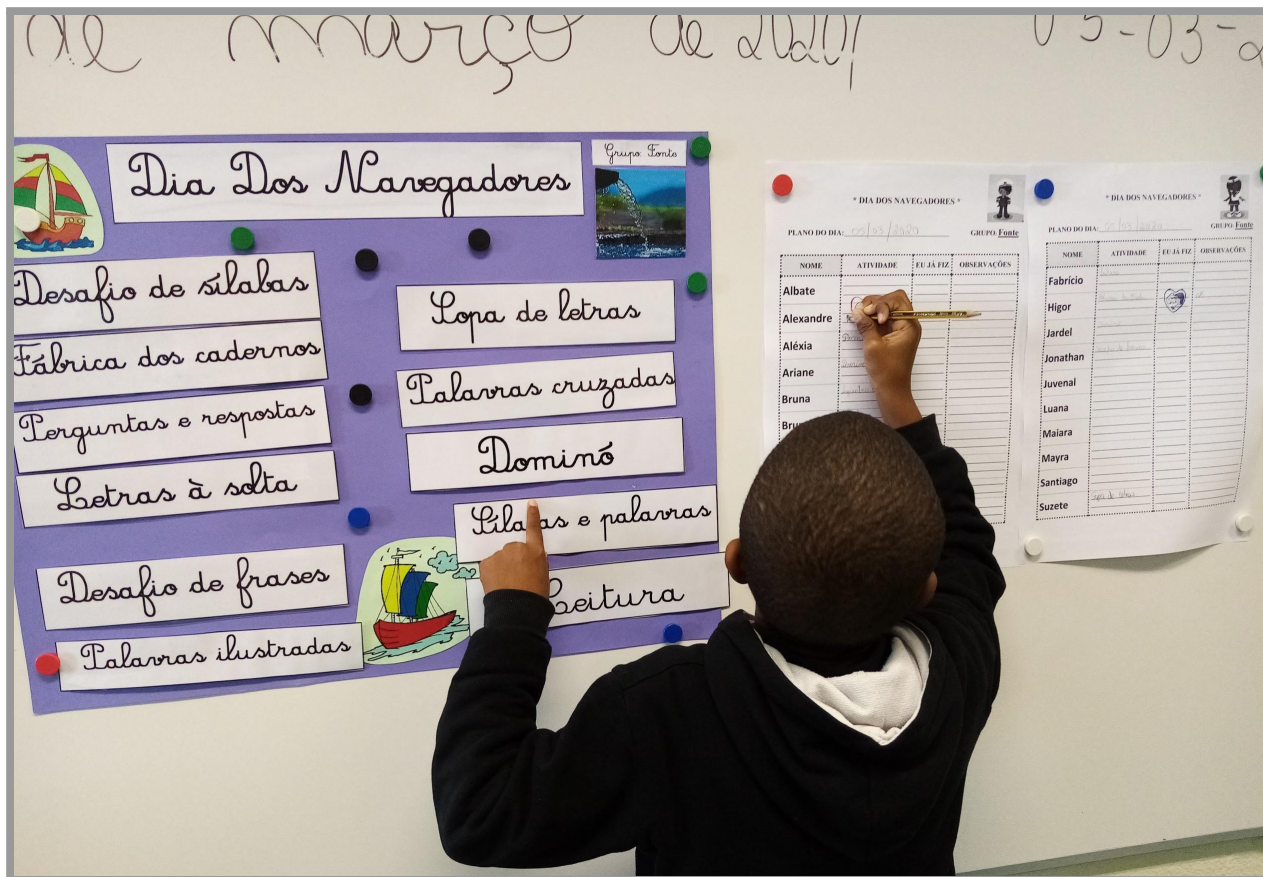 de março de 2020
05-03-2
Dia Dos Navegadores
Grupo: Fonte
Desafio de sílabas
Fábrica dos cadernos
Perguntas e respostas
Letras à solta
Desafio de frases
Palavras ilustradas
Sopa de letras
Palavras cruzadas
Dominó
e palavras
Leitura
* DIA DOS NAVEGADORES *
PLANO DO DIA: 05/03/2020 GRUPO: Fonte
NOME ATIVIDADE EU JÁ FIZ OBSERVAÇÕES
Albate
Alexandre
Aléxia
Ariane
Bruna
* DIA DOS NAVEGADORES *
PLANO DO DIA: 05/03/2020 GRUPO: Fonte
NOME ATIVIDADE EU JÁ FIZ OBSERVAÇÕES
Fabrício
Higor
Jardel
Jonathan
Juvenal
Luana
Maiara
Mayra
Santiago
Suzete Sopa de letras